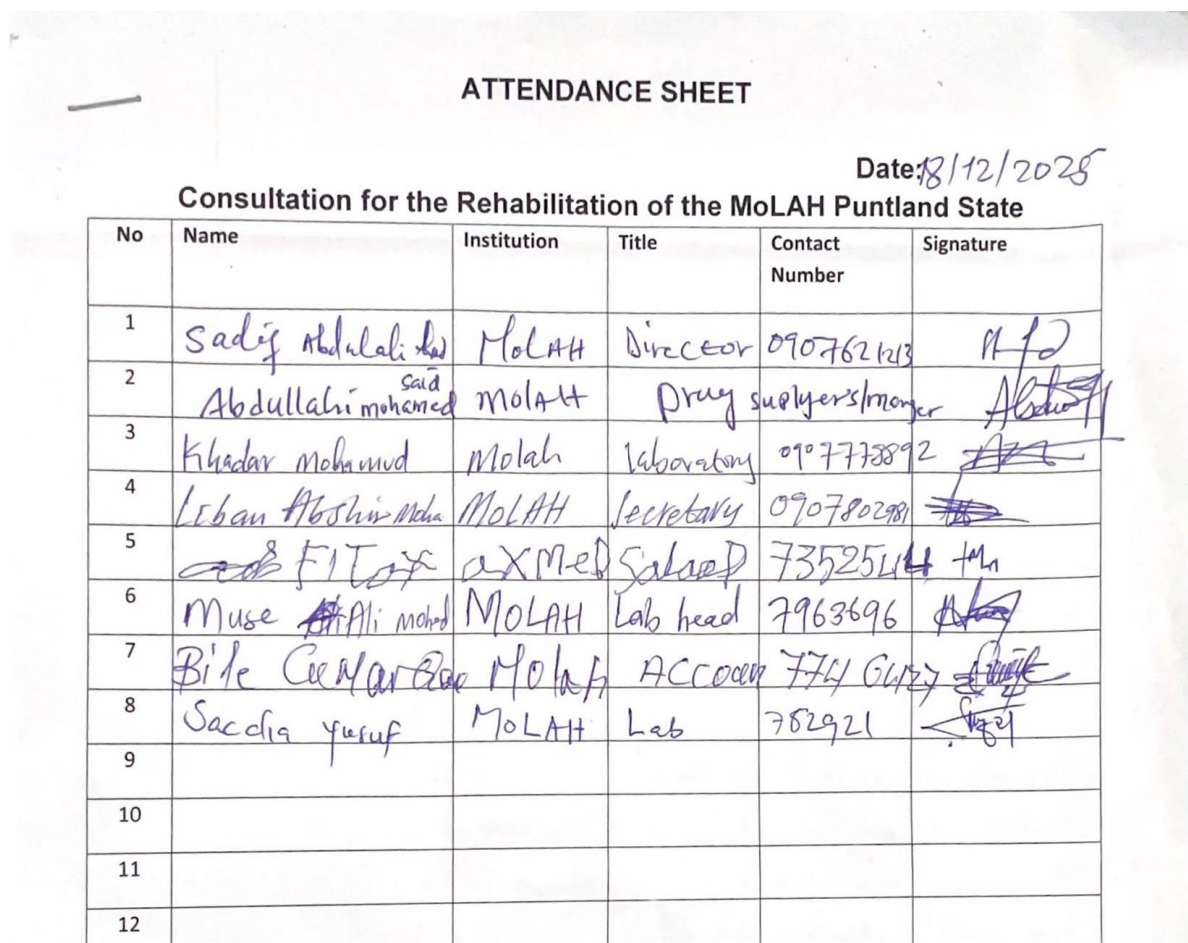 ATTENDANCE SHEET
Date: 18/12/2025
Consultation for the Rehabilitation of the MoLAH Puntland State
No Name Institution Title Contact Number Signature
1 Sadiq Abdulahi MoLAH Director 0907621213
2 Abdullahi mohamed said MolAH Drug suplyer's/manger
3 Khadar Mohamud Molah laboratory 0907778892
4 Liban Abshir Moha MoLAH Secretary 0907802981
5 aXMeD 7352544
6 Muse Ali mohed MOLAH Lab head 7963696
7 Bile MolaH ACCoun
8 Saccdia yusuf MoLAH Lab 762921
9
10
11
12